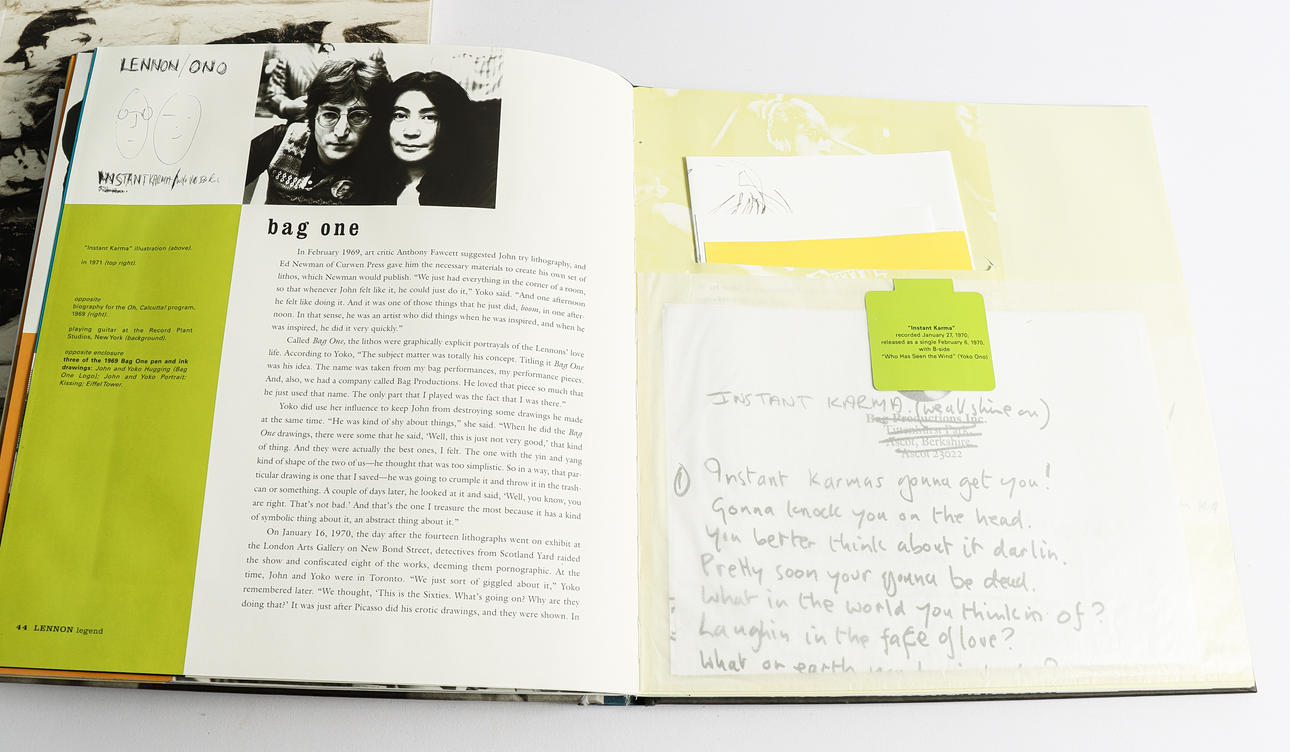 LENNON/ONO
INSTANT KARMA/
"Instant Karma" illustration (above).
in 1971 (top right).
opposite
biography for the Oh, Calcutta! program,
1969 (right).
playing guitar at the Record Plant
Studios, New York (background).
opposite enclosure
three of the 1969 Bag One pen and ink
drawings: John and Yoko Hugging (Bag
One Logo); John and Yoko Portrait;
Kissing; Eiffel Tower.
44 LENNON legend
bag one
In February 1969, art critic Anthony Fawcett suggested John try lithography, and
Ed Newman of Curwen Press gave him the necessary materials to create his own set of
lithos, which Newman would publish. "We just had everything in the corner of a room,
so that whenever John felt like it, he could just do it," Yoko said. "And one afternoon
he felt like doing it. And it was one of those things that he just did, boom, in one after-
noon. In that sense, he was an artist who did things when he was inspired, and when he
was inspired, he did it very quickly."
Called Bag One, the lithos were graphically explicit portrayals of the Lennons' love
life. According to Yoko, "The subject matter was totally his concept. Titling it Bag One
was his idea. The name was taken from my bag performances, my performance pieces.
And, also, we had a company called Bag Productions. He loved that piece so much that
he just used that name. The only part that I played was the fact that I was there."
Yoko did use her influence to keep John from destroying some drawings he made
at the same time. "He was kind of shy about things," she said. "When he did the Bag
One drawings, there were some that he said, 'Well, this is just not very good,' that kind
of thing. And they were actually the best ones, I felt. The one with the yin and yang
kind of shape of the two of us—he thought that was too simplistic. So in a way, that par-
ticular drawing is one that I saved—he was going to crumple it and throw it in the trash-
can or something. A couple of days later, he looked at it and said, 'Well, you know, you
are right. That's not bad.' And that's the one I treasure the most because it has a kind
of symbolic thing about it, an abstract thing about it."
On January 16, 1970, the day after the fourteen lithographs went on exhibit at
the London Arts Gallery on New Bond Street, detectives from Scotland Yard raided
the show and confiscated eight of the works, deeming them pornographic. At the
time, John and Yoko were in Toronto. "We just sort of giggled about it," Yoko
remembered later. "We thought, 'This is the Sixties. What's going on? Why are they
doing that?' It was just after Picasso did his erotic drawings, and they were shown. In
"Instant Karma"
recorded January 27, 1970,
released as a single February 6, 1970,
with B-side
"Who Has Seen the Wind" (Yoko Ono)
INSTANT KARMA. (we all shine on)
Bag Productions Inc.
Tittenhurst Park,
Ascot, Berkshire.
Ascot 23022
1 Instant Karmas gonna get you!
Gonna knock you on the head.
You better think about it darlin.
Pretty soon your gonna be dead.
What in the world you thinkin of?
Laughin in the face of love?
What on earth